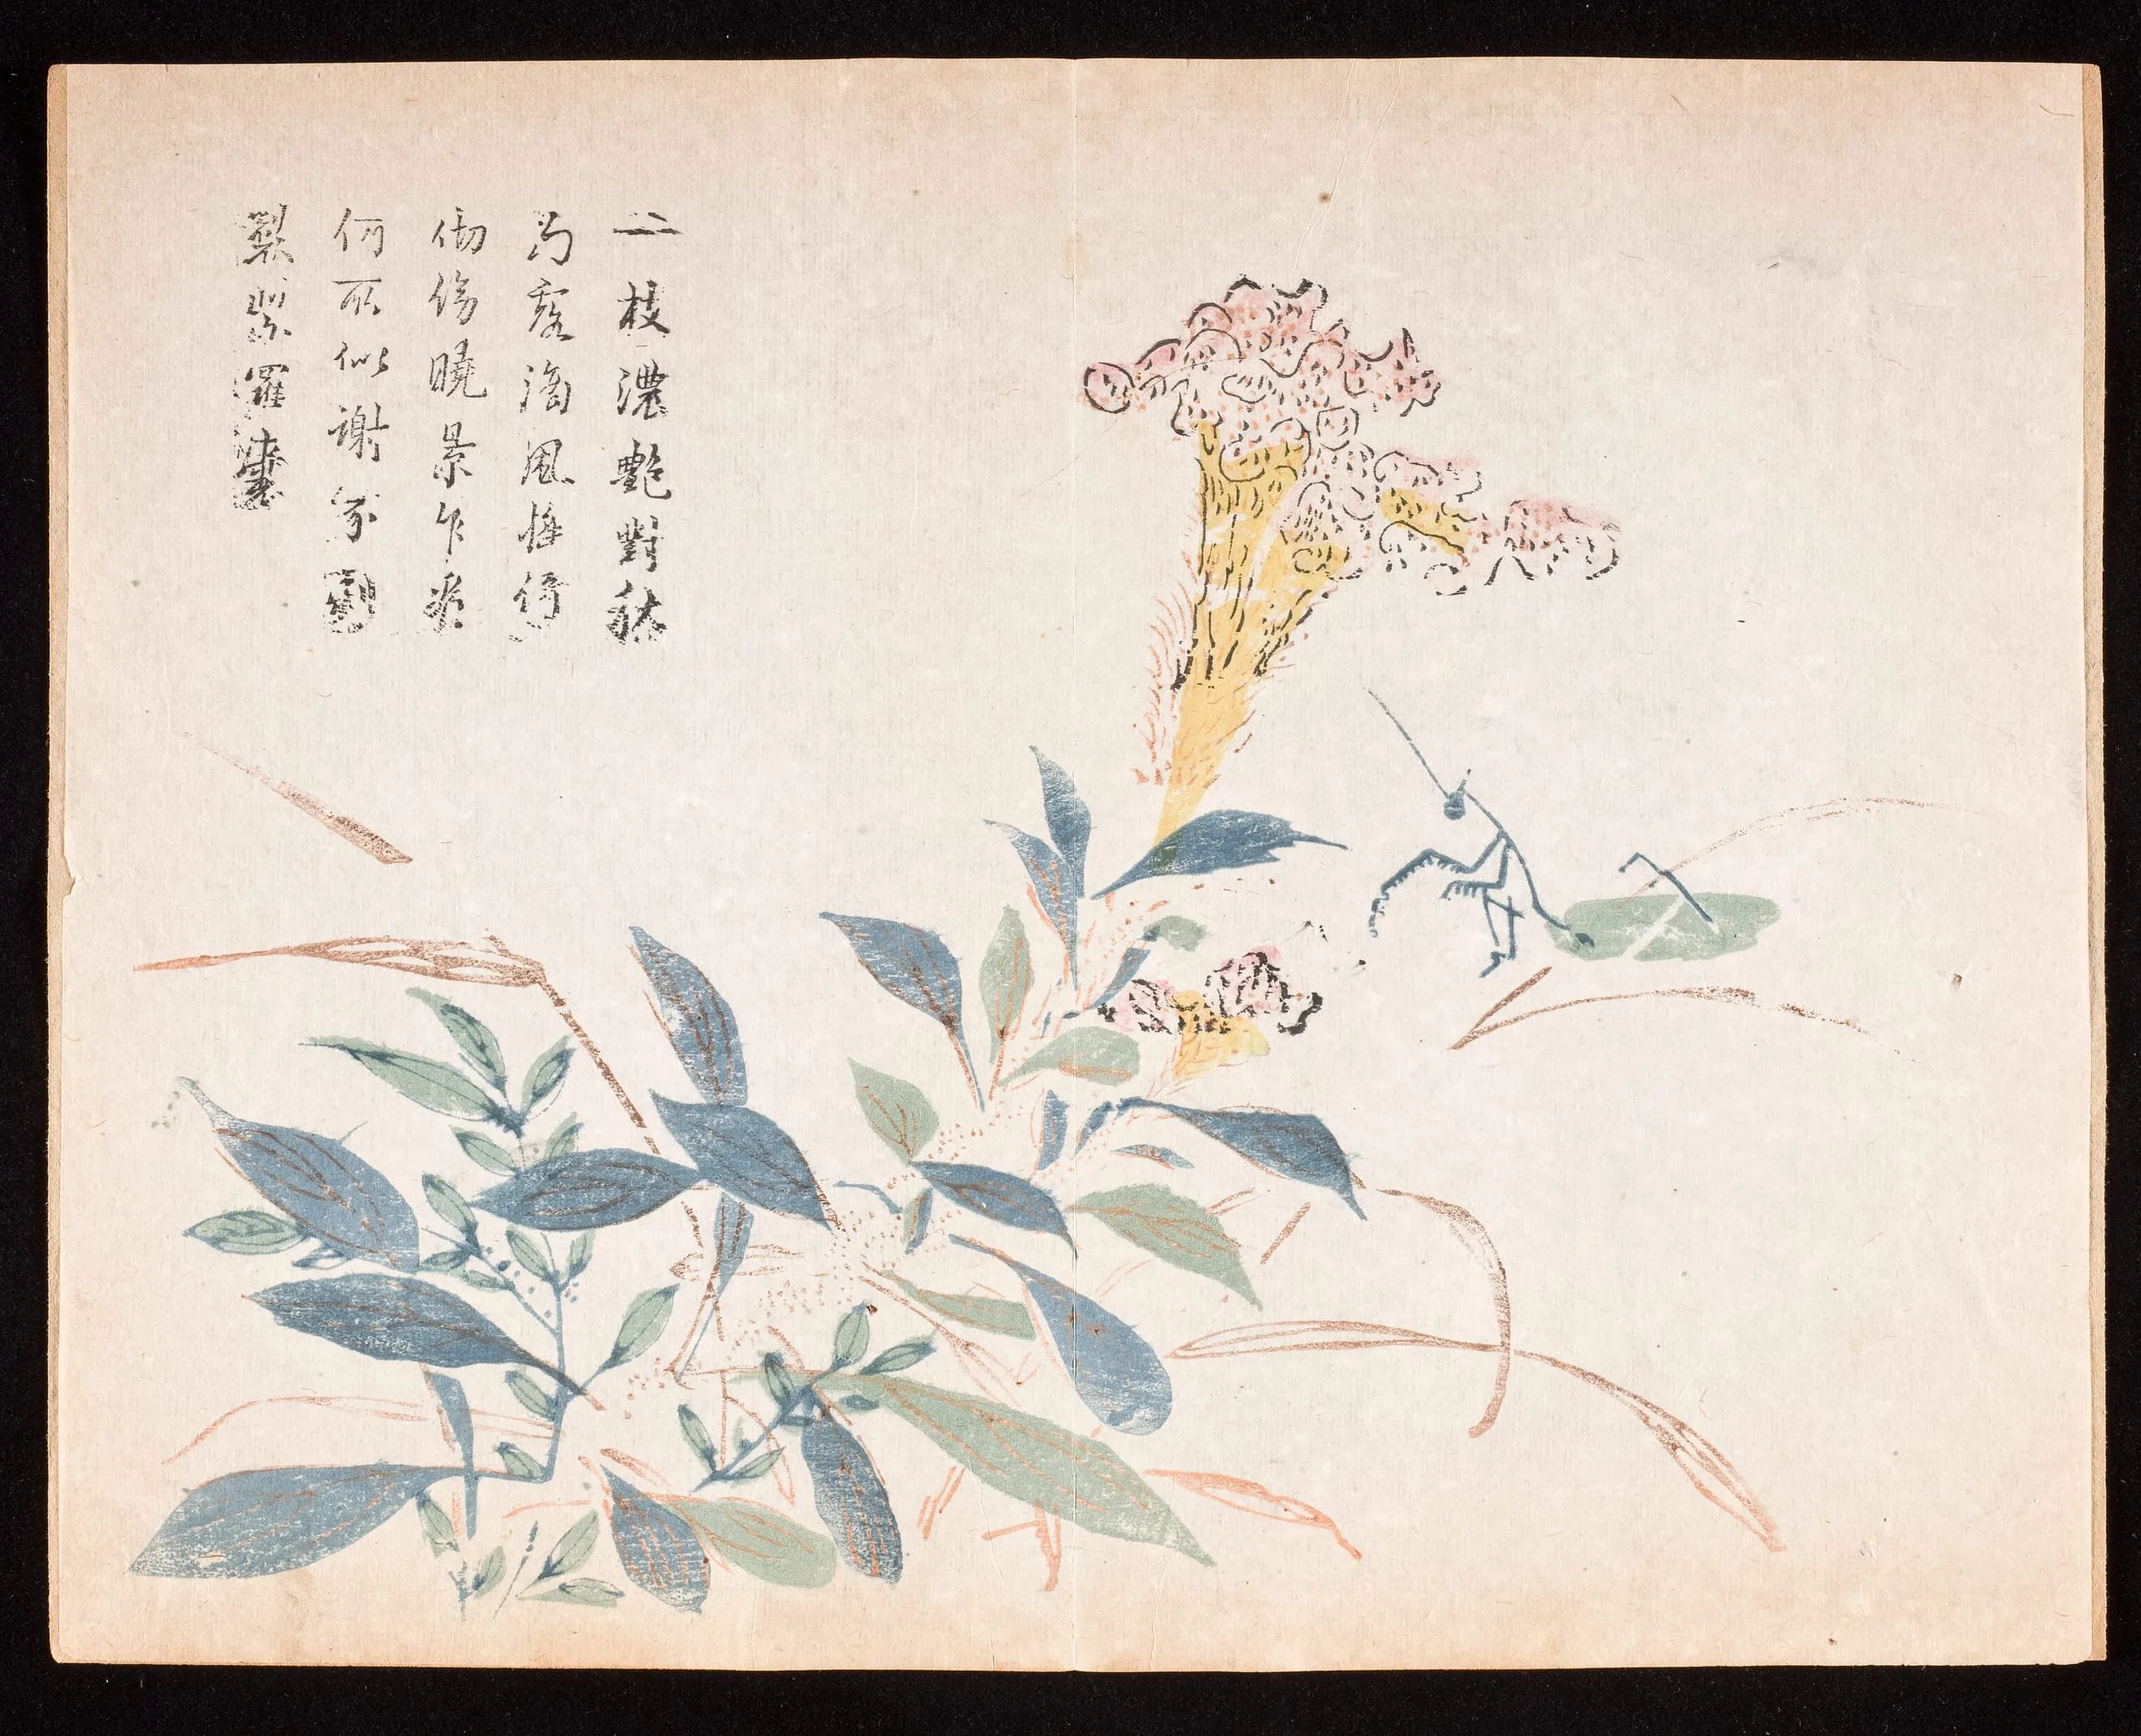 一枝濃艷對秋
光露滴風搖倚
砌傍曉景乍看
何所似謝家新
製紫羅裳